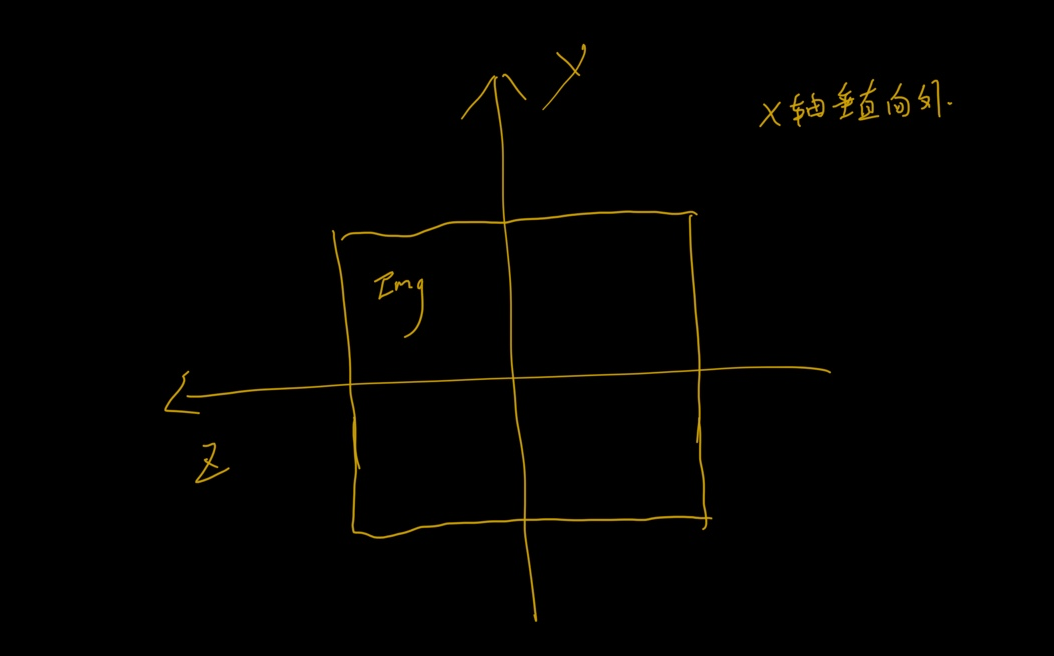 Y
X轴垂直向外.
Img
Z